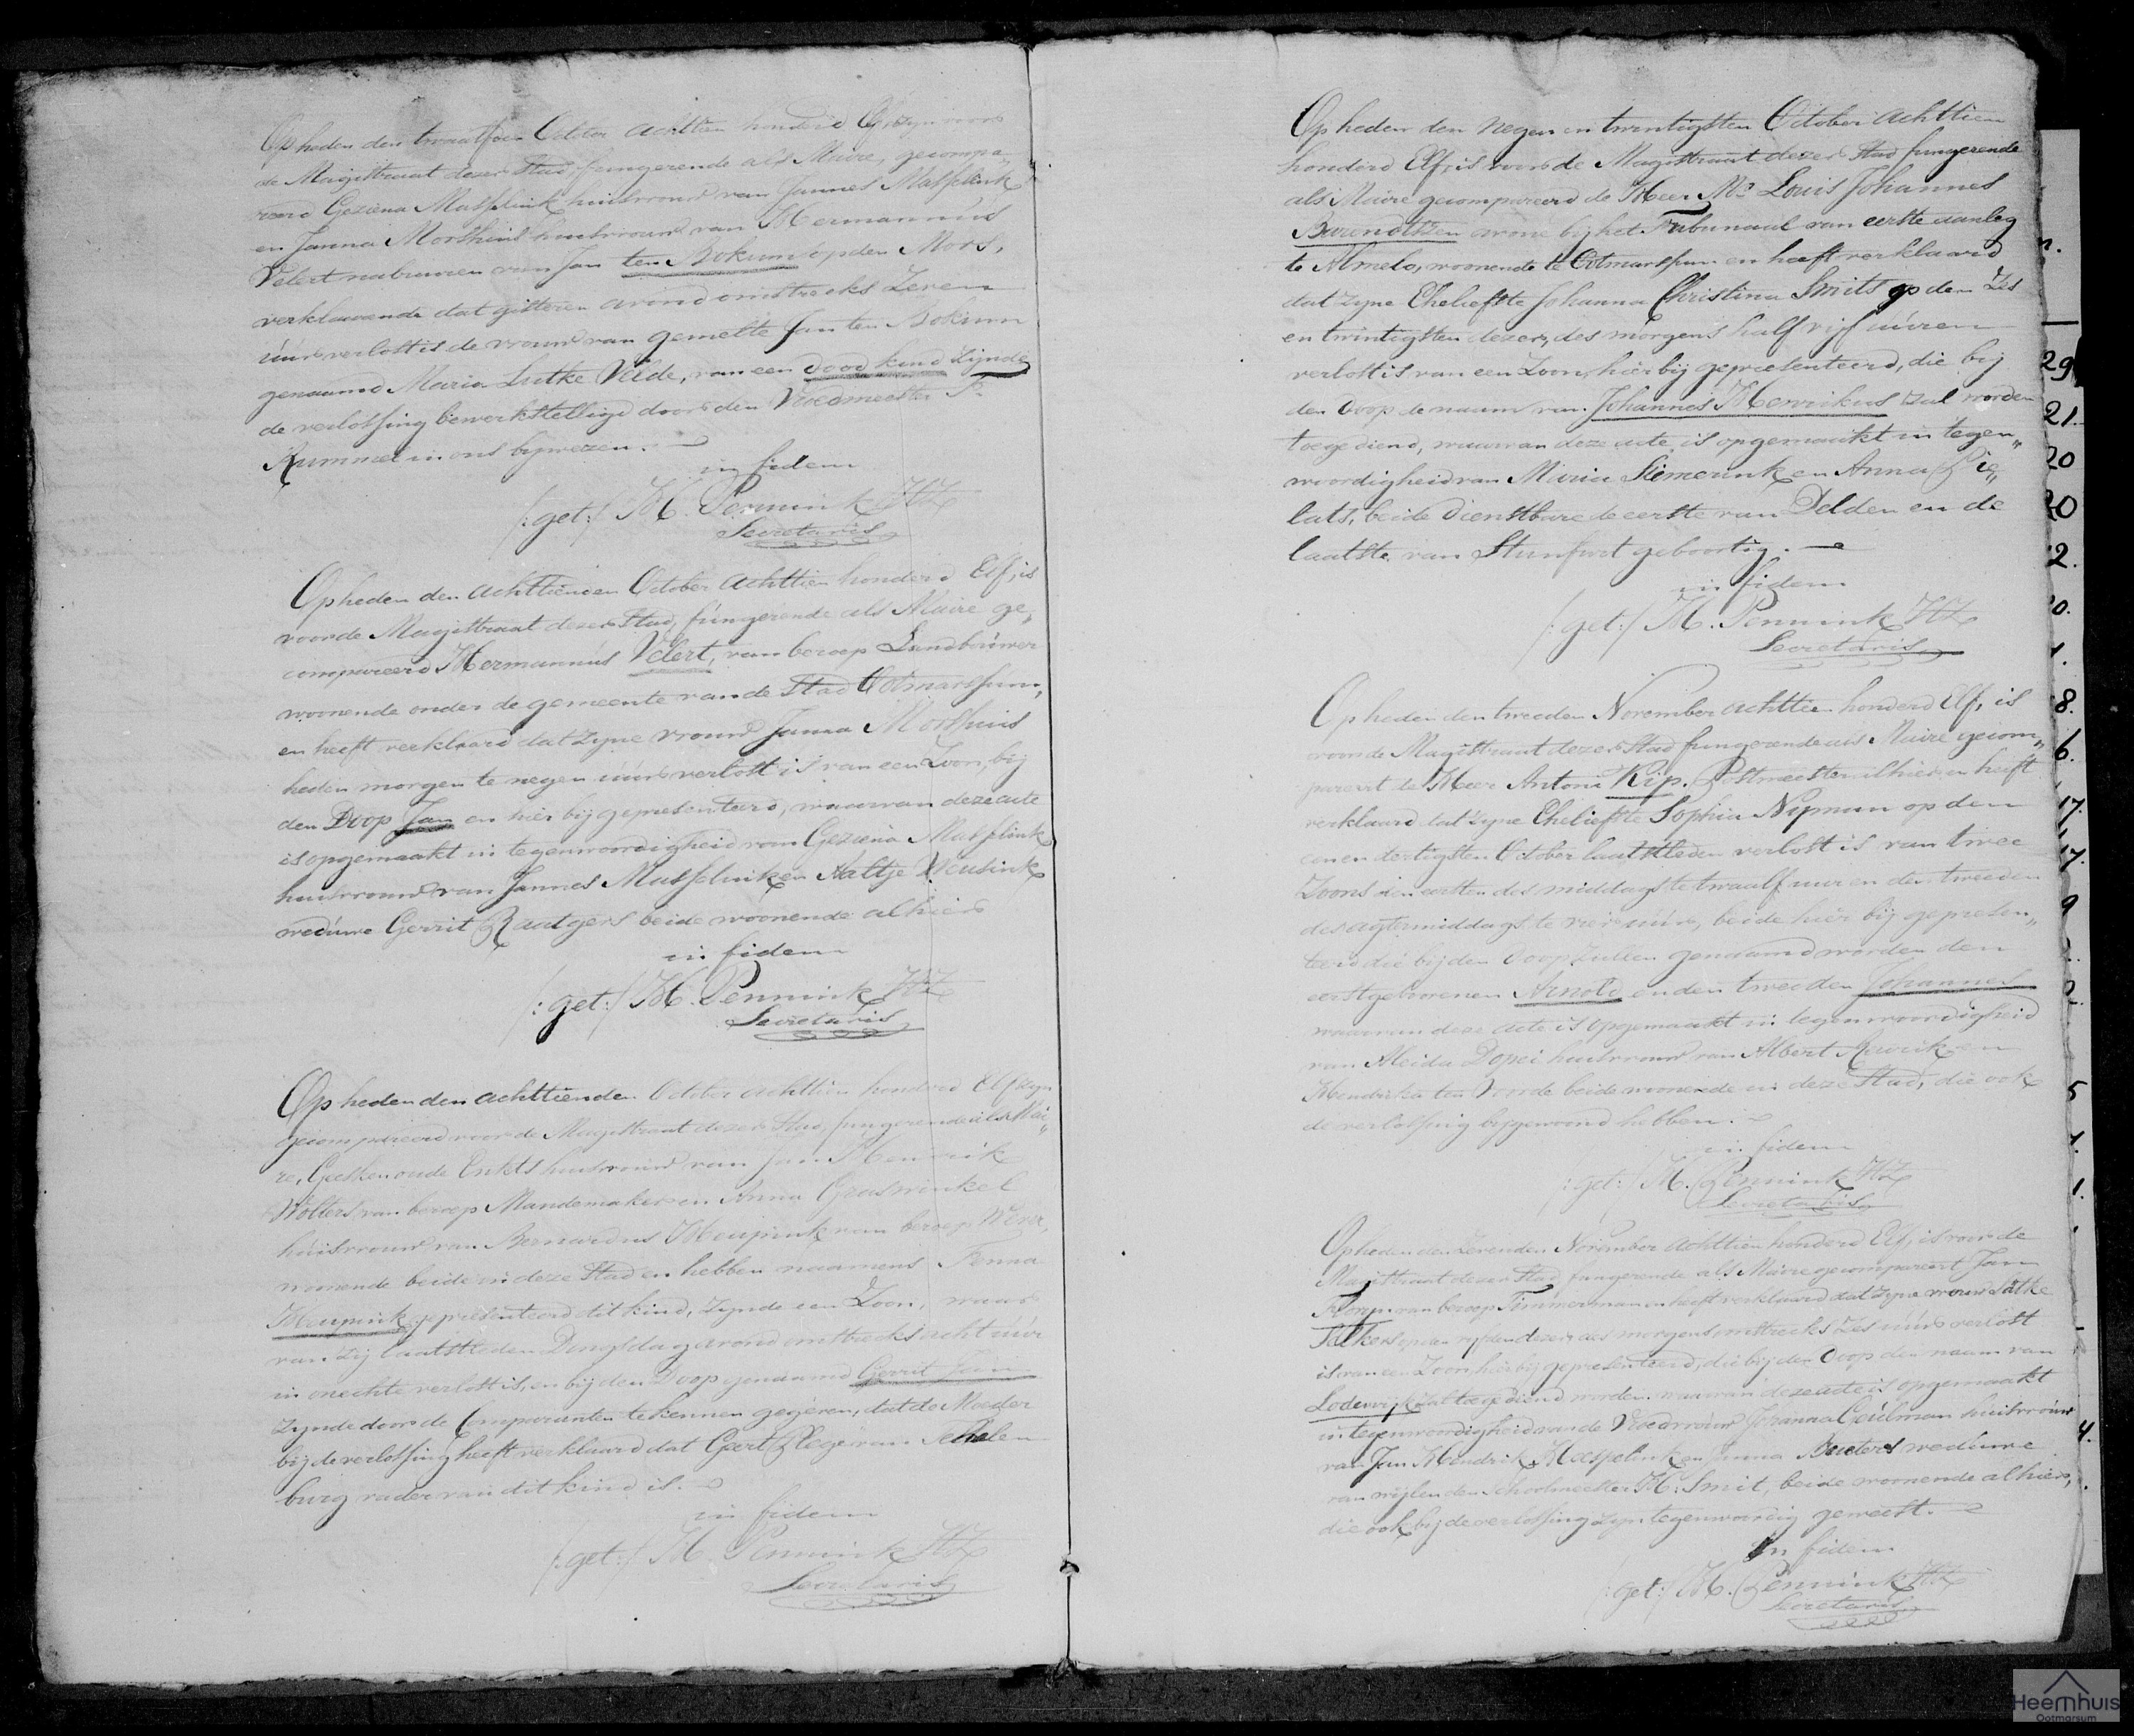 Op heden den twaalfden October achttien honderd Elf, zijn voor
de Magistraat dezer Stad, fungerende als Maire, gecompa„
reerd Geziena Masselink huisvrouw van Jannes Masselink
en Janna Morshuis huisvrouw van Hermannus
Velert nabuuren van Jan ten Bokum op den Mors,
verklarende dat gisteren avond omstreeks Zeven
uur verlost is de vrouw van gemelte Jan ten Bokum
genaamd Maria Lutke Velde, van een dood kind zijnde
de verlossing bewerkstelligd door den Vroedmeester F.
Rummel in ons bijwezen.
in fidem
/:get:/ M. Pennink HZ
Secretaris
Op heden den achttienden October achttien honderd Elf, is
voor de Magistraat dezer Stad, fungerende als Maire ge„
compareerd Hermannus Velert, van beroep Landbouwer
woonende onder de gemeente van de Stad Ootmarssum,
en heeft verklaard dat zyne vrouw Janna Morshuis
heden morgen te negen uur verlost is van een Zoon, bij
den Doop Jan en hier bij gepresenteerd, waarvan deze acte
is opgemaakt in tegenwoordigheid van Geziena Masselink
huisvrouw van Jannes Masselink en Aaltje Weusink
weduwe Gerrit Raatgers beide woonende alhier
in fidem
/:get:/ M. Pennink HZ
Secretaris
Op heden den achttienden October achttien honderd Elf zyn
gecompareerd voor de Magistraat dezer Stad, fungerende als Mai„
re, Geesken oude huisvrouw van Jan Henrik
Wolters van beroep Mandemaker en Anna Graswinkel
huisvrouw van Bernardus Heupink van beroep Wever,
woonende beide in deze Stad en hebben naamens Fenna
Heupink gepresenteerd dit kind, zynde een Zoon, waar
van zij laatstleden Dingsdag avond omstreeks acht uur
in onechte verlost is, en bij den Doop genaamd Gerrit Jan
zynde door de Comparanten te kennen gegeven, dat de Moeder
bij de verlossing heeft verklaard dat Gert Plege van
burg vader van dit kind is.
in fidem
/:get:/ M. Pennink HZ
Secretaris
Op heden den negen en twintigsten October achttien
honderd Elf, is voor de Magistraat dezer Stad fungerende
als Maire gecompareerd de Heer Mr. Louis Johannes
Barendtzen avoué bij het Tribunaal van eerste aanleg
te Almelo, woonende te Ootmarssum en heeft verklaard
dat zyne Eheliefste Johanna Christina Smits op den Zes
en twintigsten dezer, des morgens half vijf uuren
verlost is van een Zoon, hier bij gepresenteerd, die bij
den Doop de naam van Johannes Henrikus zal worden
toegediend, waarvan deze acte is opgemaakt in tegen„
woordigheid van Maria Siemerink en Anna
lats, beide Dienstbare de eerste van Delden en de
laatste van geboortig.
in fidem
/:get:/ M. Pennink HZ
Secretaris
Op heden den tweeden November achttien honderd Elf, is
voor de Magistraat dezer Stad fungerende als Maire gecom„
pareert de Heer Antoni Kip, Postmeester alhier en heeft
verklaard dat zyne Eheliefste Sophia Nijman op den
een en dertigsten October laatstleden verlost is van twee
Zoons den eersten des middags te twaalf uur en den tweeden
des agtermiddags te vier uur, beide hier bij gepresen„
teerd die bij den Doop zullen genaamd worden den
eerstgeboorenen Arnold en den tweeden Johannes
waarvan deze acte is opgemaakt in tegenwoordigheid
van Aleida huisvrouw van Albert en
Hendrika ten Voorde beide woonende in deze Stad, die ook
de verlossing bijgewoond hebben.
in fidem
/:get:/ M. Pennink HZ
Secretaris
Op heden den Zevenden November achttien honderd Elf, is voor de
Magistraat dezer Stad fungerende als Maire gecompareert Jan
Tromp van beroep Timmerman en heeft verklaard dat zyne vrouw
op den vyfden dezer des morgens omstreeks Zes uur verlost
is van een Zoon hier bij gepresenteerd, die bij den Doop den naam van
Lodewijk zal toegediend worden waarvan deze acte is opgemaakt
in tegenwoordigheid van de Vroedvrouw Johanna huisvrouw
van Jan Hendrik Masselink en Janna weduwe
van wijlen den Schoolmeester H. Smit, beide woonende alhier,
die ook bij de verlossing zyn tegenwoordig geweest.
in fidem
/:get:/ M. Pennink HZ
Secretaris
29
21.
20
20
2.
0.
1.
8.
6.
17.
17.
9
5
1.
1.
4.
Heemhuis
Ootmarsum